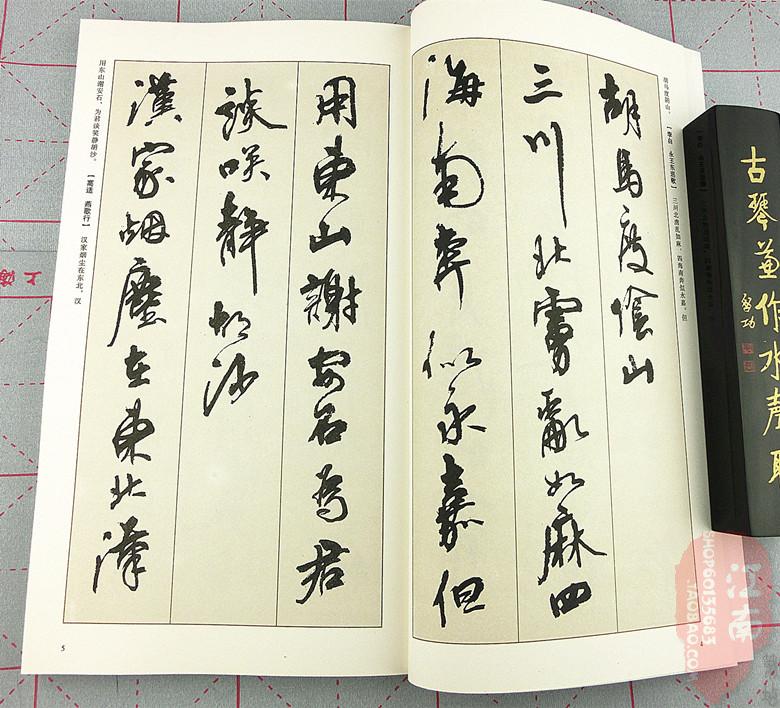 胡马度阴山。【李白 永王东巡歌】三川北虏乱如麻，四海南奔似永嘉。但
胡馬度陰山
三川北虜亂如麻四
海南奔似永嘉但
用東山謝安石為君
談咲靜胡沙
漢家烟塵在東北漢
用东山谢安石，为君谈笑静胡沙。【高适 燕歌行】汉家烟尘在东北，汉
5
古琴兼作水聲聽
启功
江南
SHOP60135683
.TAOBAO.COM